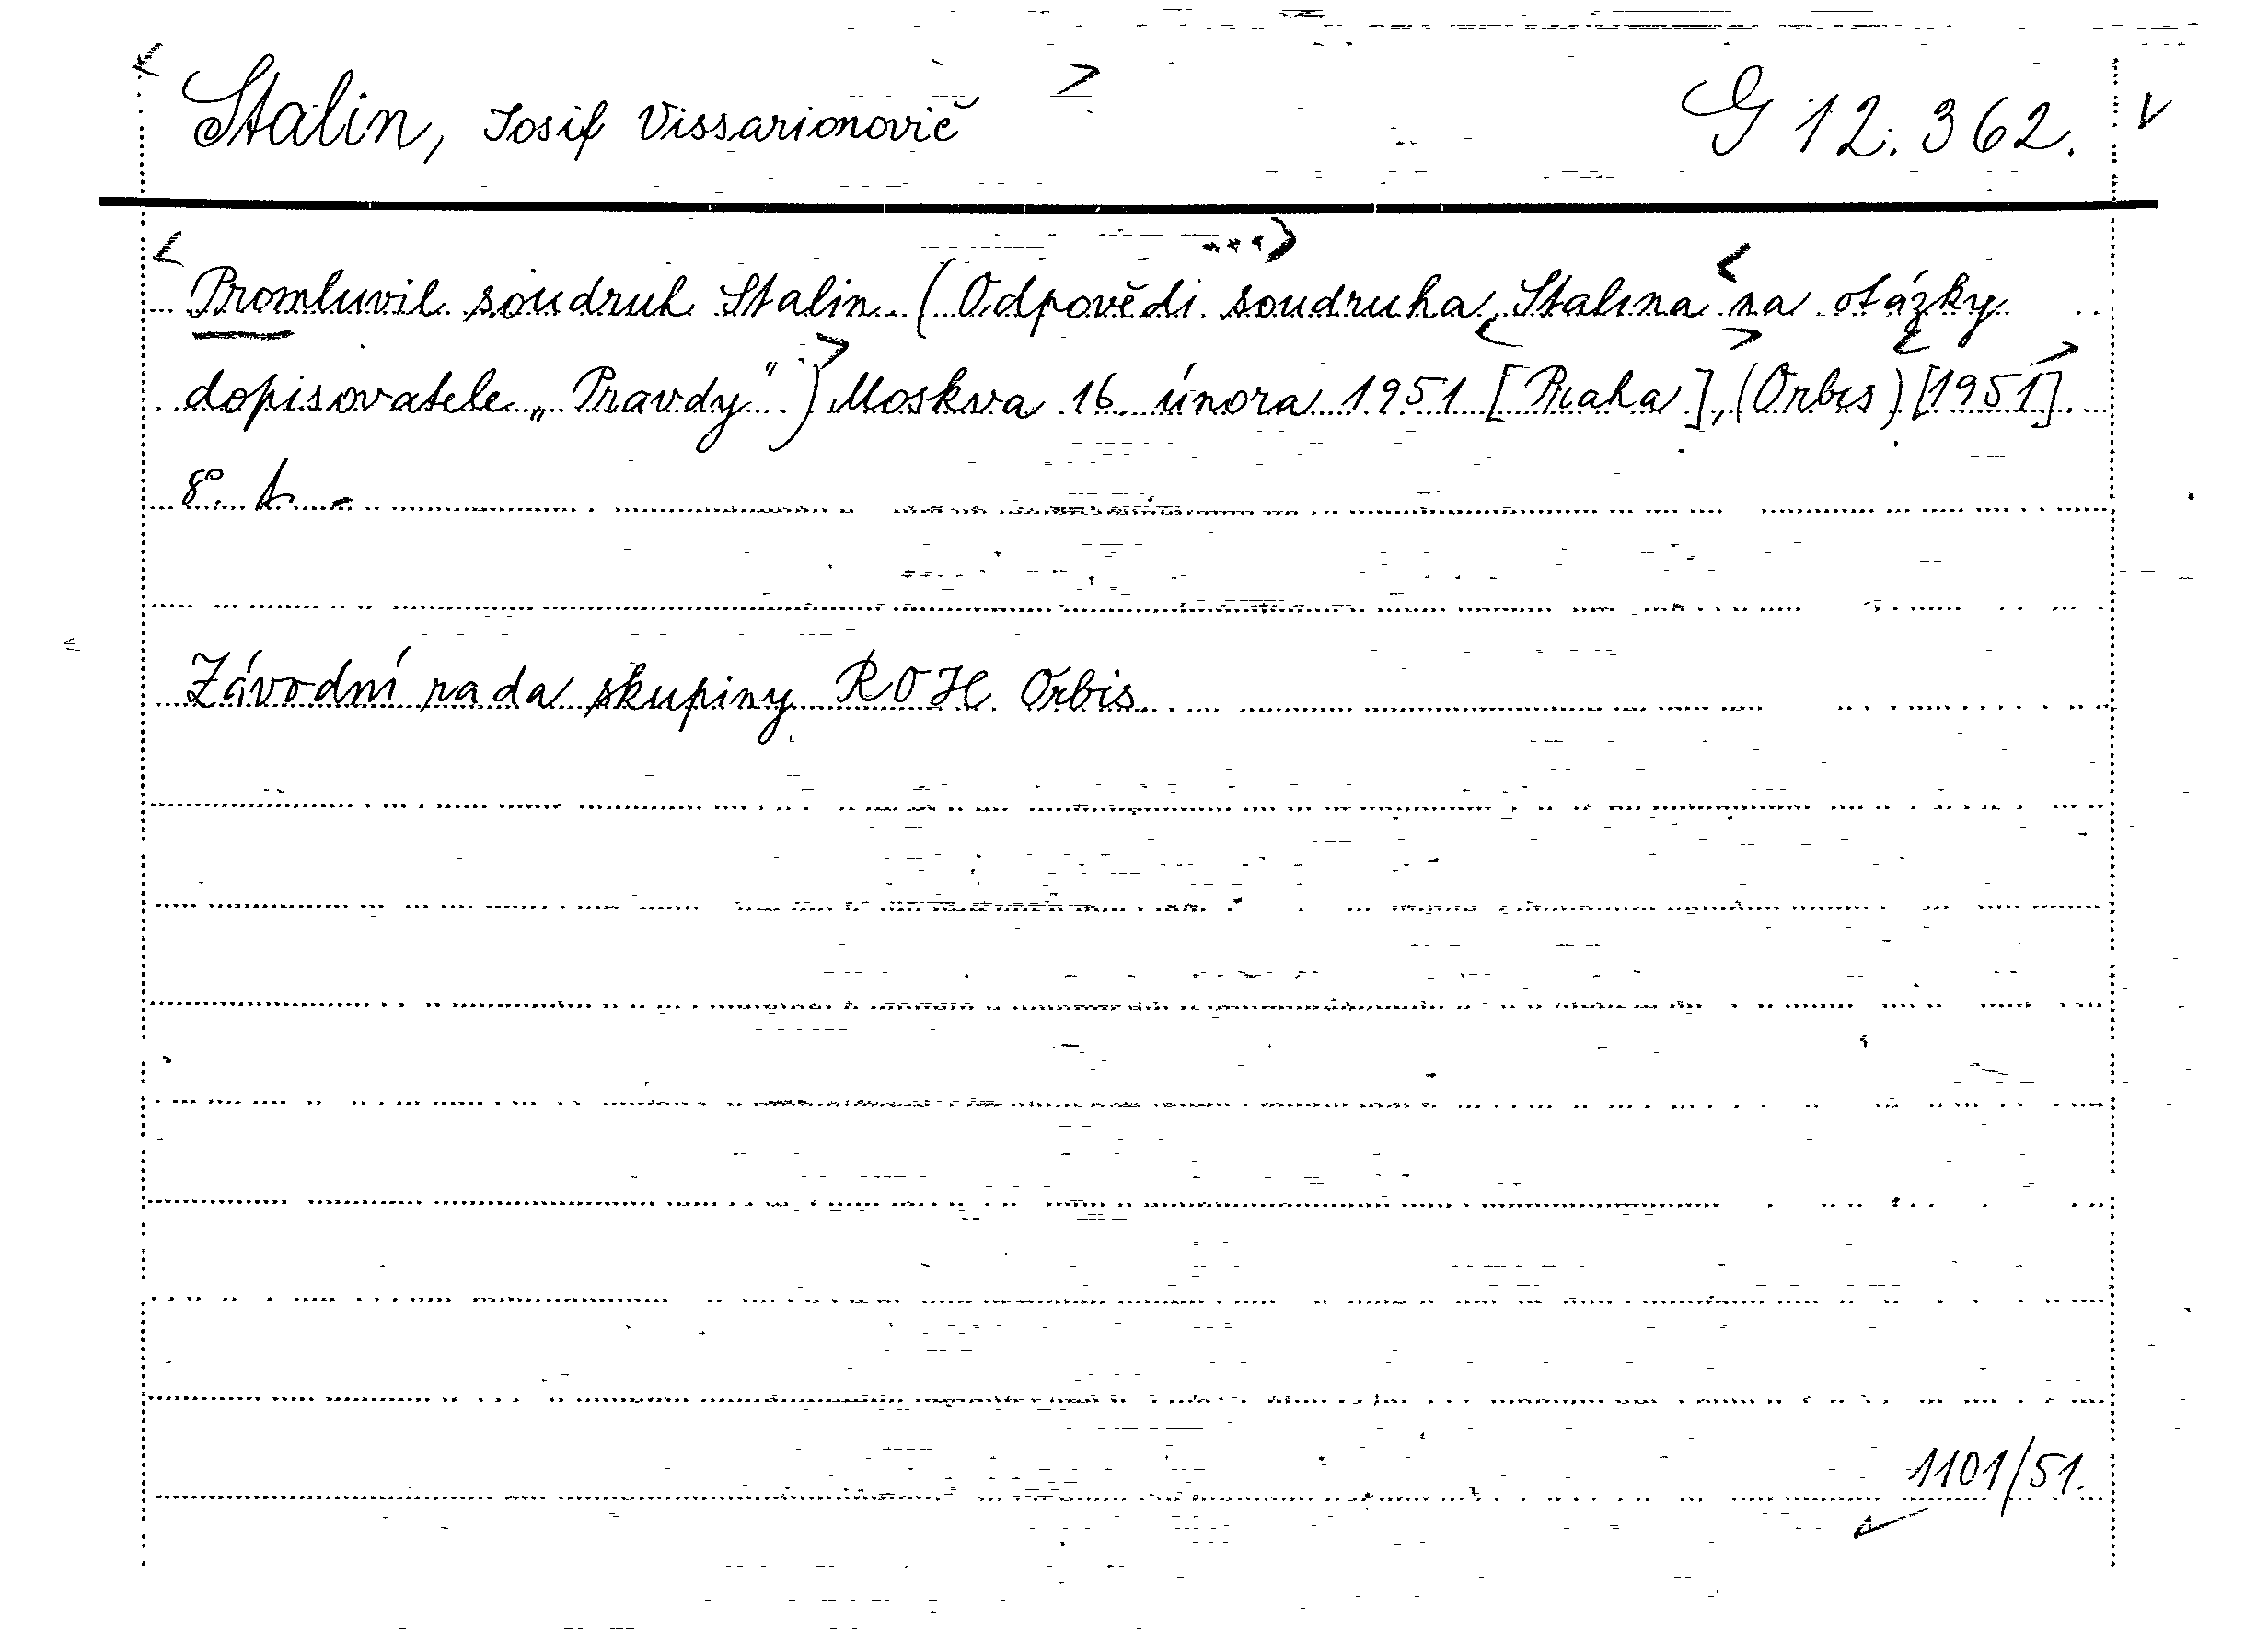 Stalin, Josif Vissarionovič G 12.362.
Promluvil soudruh Stalin. (Odpovědi soudruha Stalina na otázky
dopisovatele „Pravdy".) Moskva 16. února 1951. [Praha], (Orbis) [1951].
8°.
Závodní rada skupiny ROH Orbis.
1101/51.